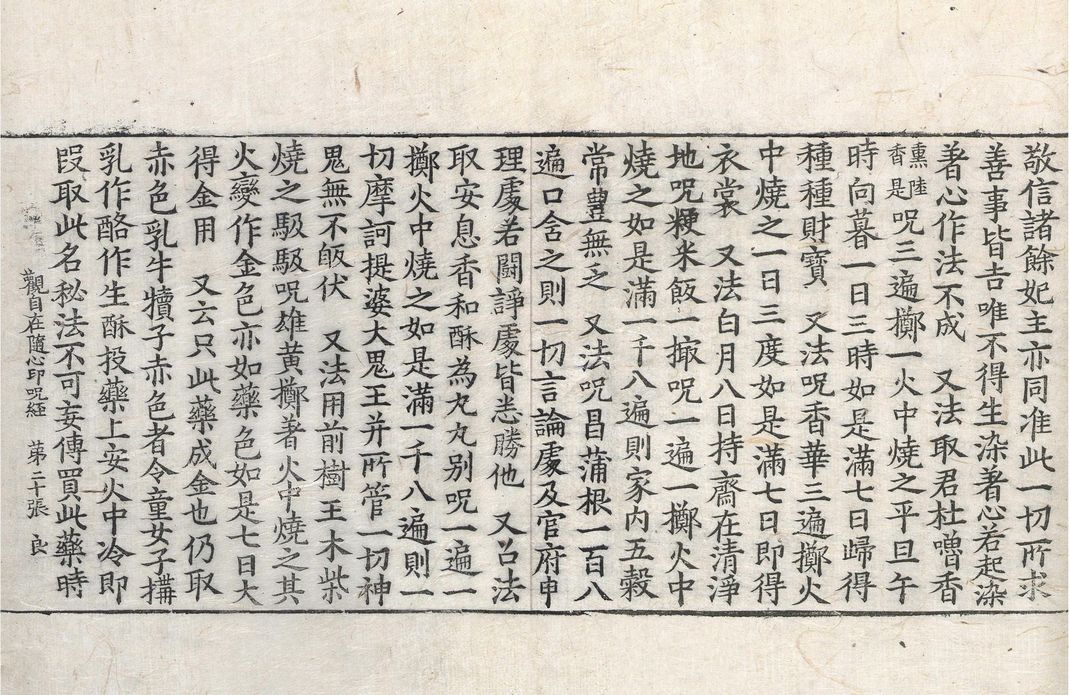 敬信諸餘妃主亦同准此一切所求
善事皆吉唯不得生染著心若起染
著心作法不成　又法取君杜嚕香
熏陸香是呪三遍擲一火中燒之平旦午
時向暮一日三時如是滿七日歸得
種種財寶　又法呪香華三遍擲火
中燒之一日三度如是滿七日即得
衣裳　又法白月八日持齋在清淨
地呪粳米飯一掬呪一遍一擲火中
燒之如是滿一千八遍則家內五穀
常豊無乏　又法呪昌蒲根一百八
遍口含之則一切言論處及官府申
理處若鬪諍處皆悉勝他　又吕法
取安息香和酥為丸丸別呪一遍一
擲火中燒之如是滿一千八遍則一
切摩訶提婆大鬼王并所管一切神
鬼無不皈伏　又法用前樹王木柴
燒之馺馺呪雄黃擲著火中燒之其
火變作金色亦如藥色如是七日大
得金用　又云只此藥成金也仍取
赤色乳牛犢子赤色者令童女子搆
乳作酪作生酥投藥上安火中冷即
段取此名秘法不可妄傳買此藥時
觀自在隨心印呪経　苐二十張　良